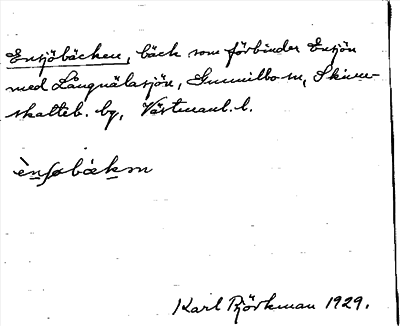 Ensjöbäcken, bäck som förbinder Ensjön
med Långnälasjön, Gunnilbo sn, Skinn-
skatteb. bg, Västmanl. l.
Karl Björkman 1929.